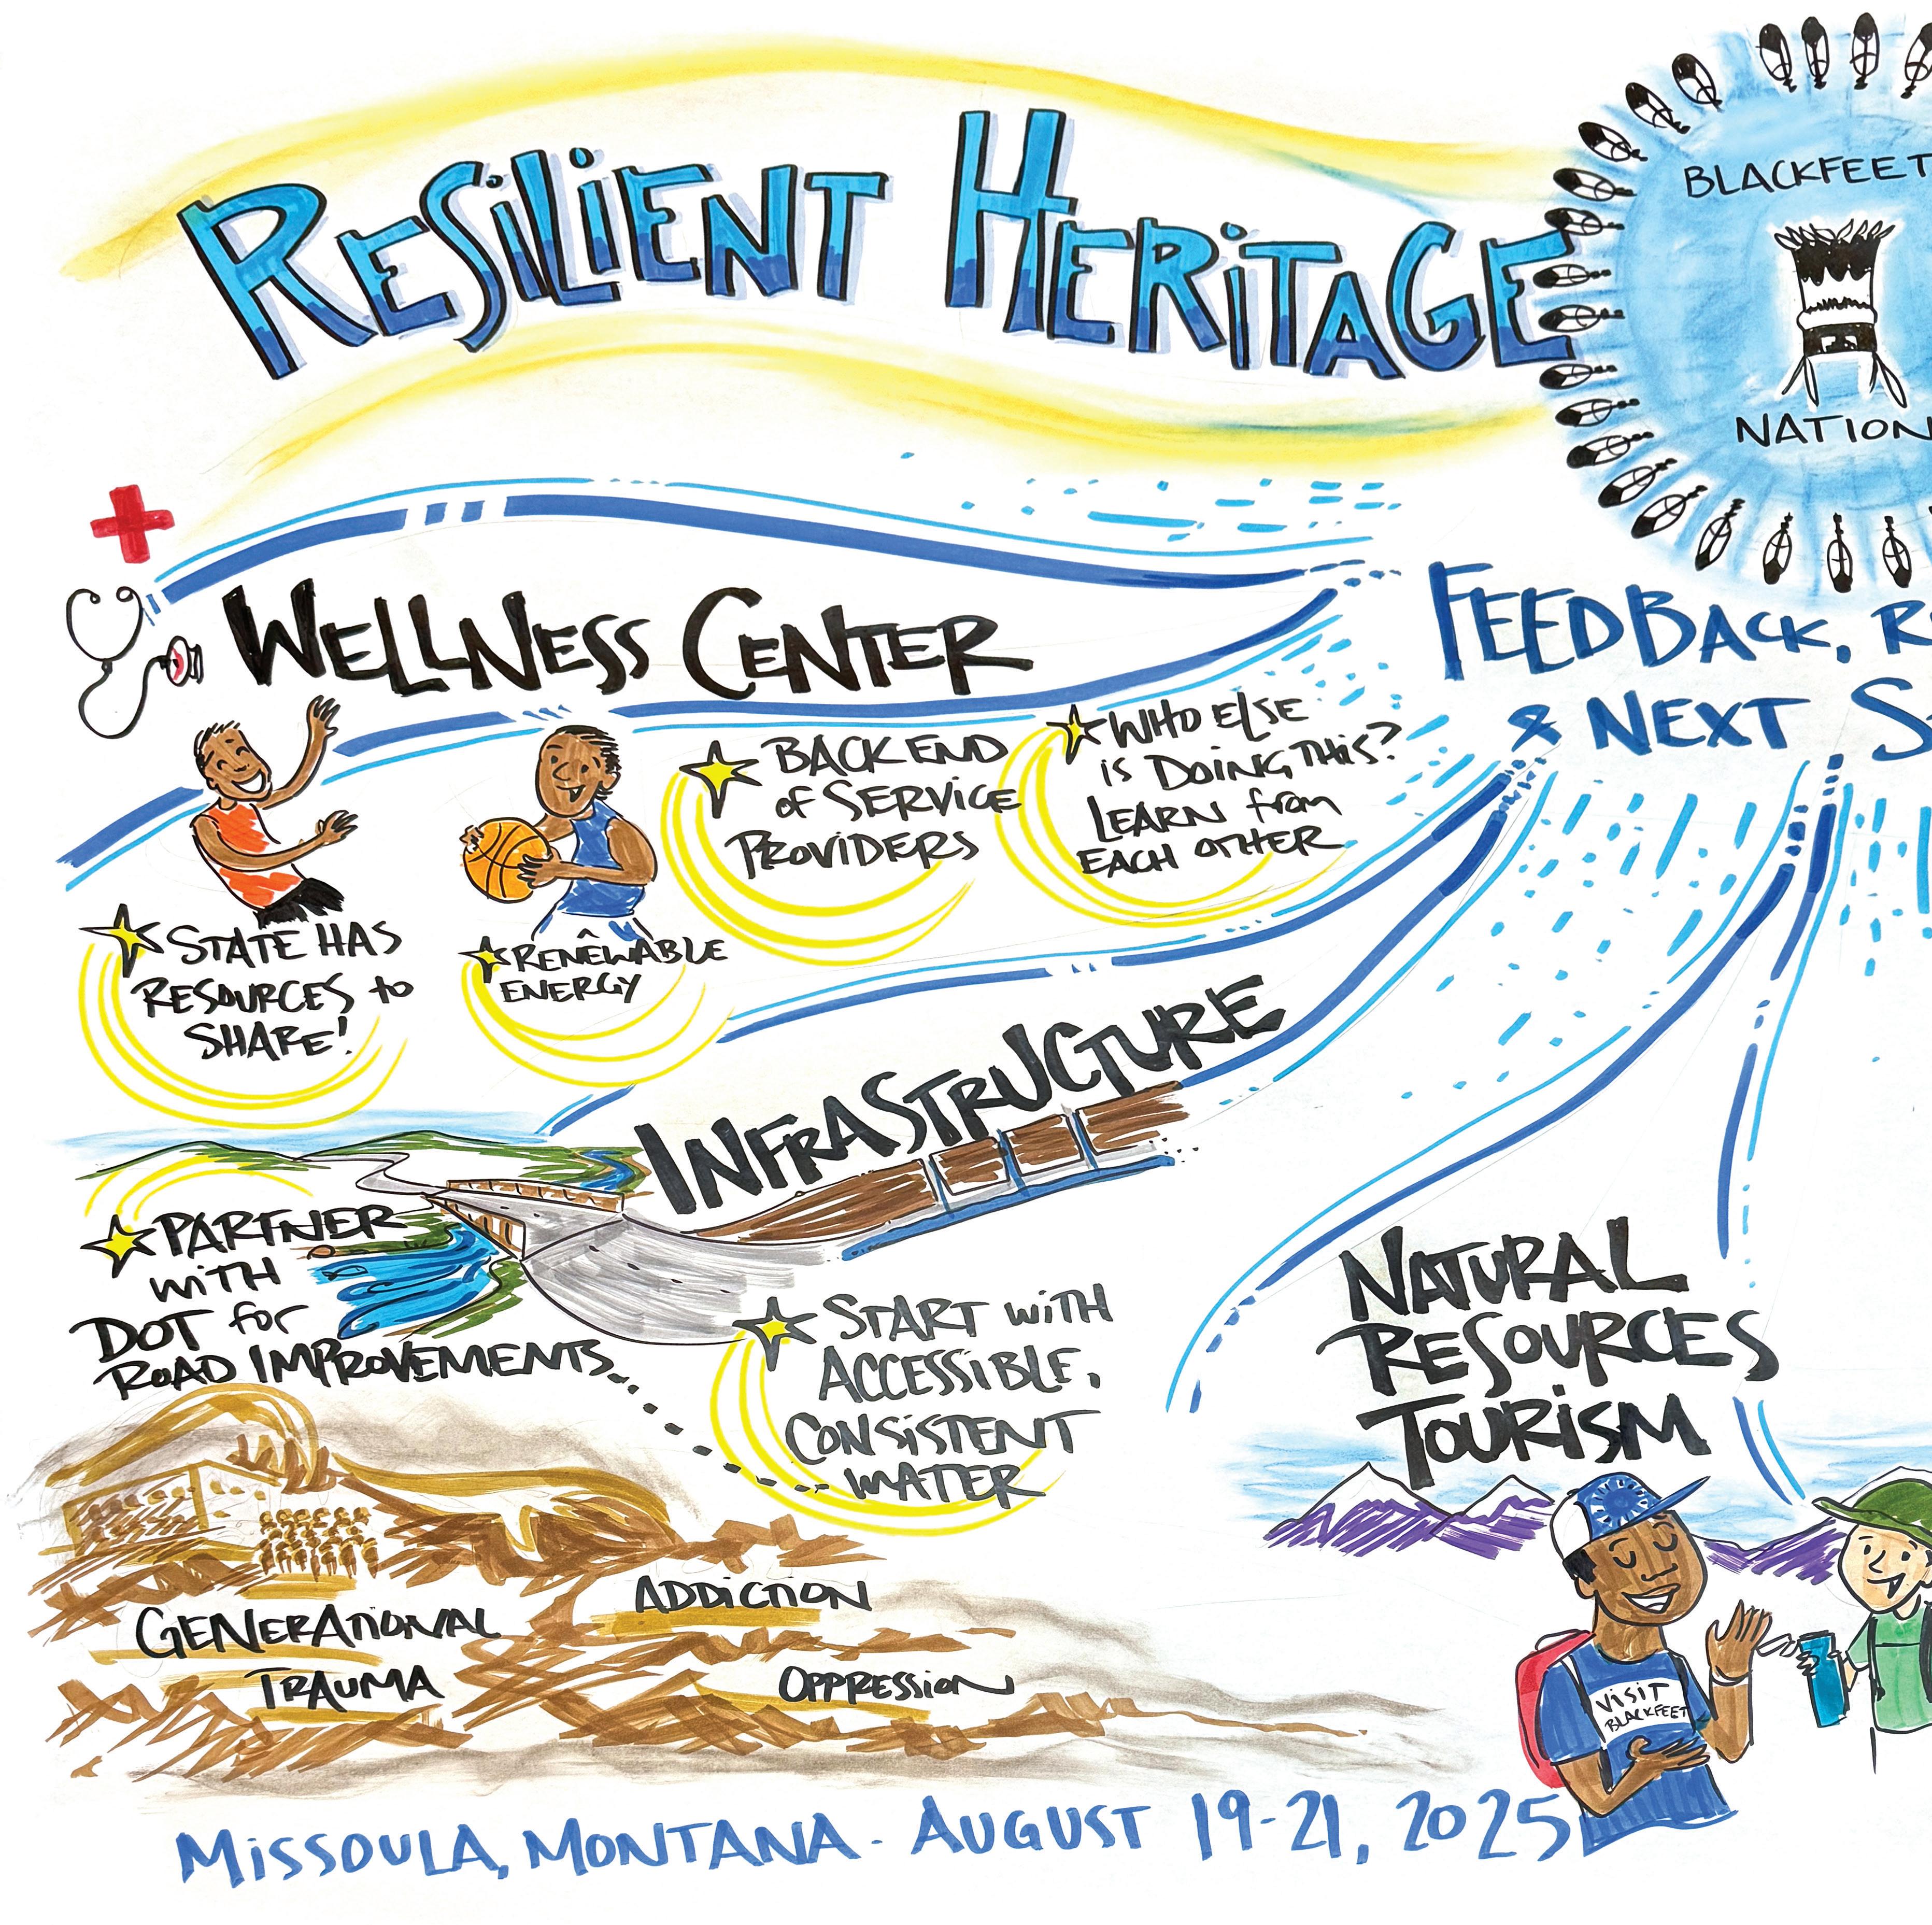 RESILIENT HERITAGE
BLACKFEET
NATION
FEEDBACK,
& NEXT
WELLNESS CENTER
BACK END
of SERVICE
PROVIDERS
WHO ELSE
is DOING THIS?
LEARN from
EACH OTHER
STATE HAS
RESOURCES to
SHARE!
RENEWABLE
ENERGY
INFRASTRUCTURE
PARTNER
WITH
DOT for
ROAD IMPROVEMENTS
START WITH
ACCESSIBLE,
CONSISTENT
WATER
NATURAL
RESOURCES
TOURISM
GENERATIONAL
TRAUMA
ADDICTION
OPPRESSION
VISIT
BLACKFEET
MISSOULA, MONTANA - AUGUST 19-21, 2025